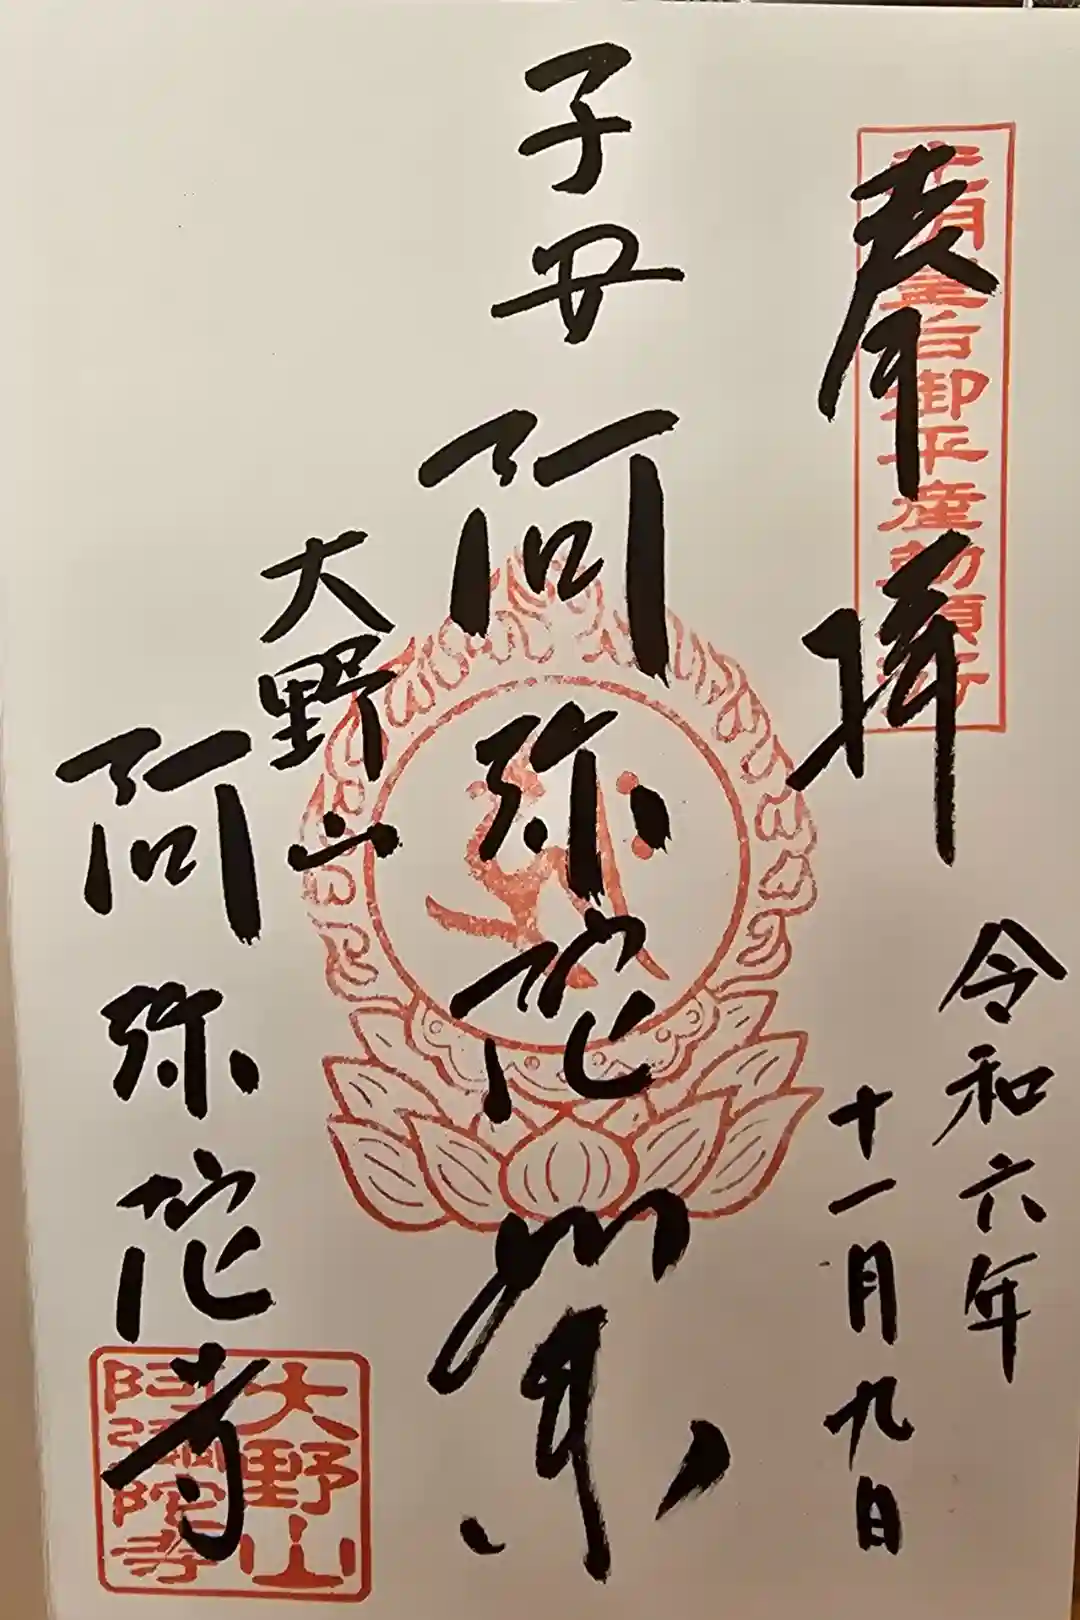 奉拝
皇后御平産勅願所
令和六年
十一月九日
子安 阿弥陀
大野山
阿弥陀寺
大野山
阿彌陀寺